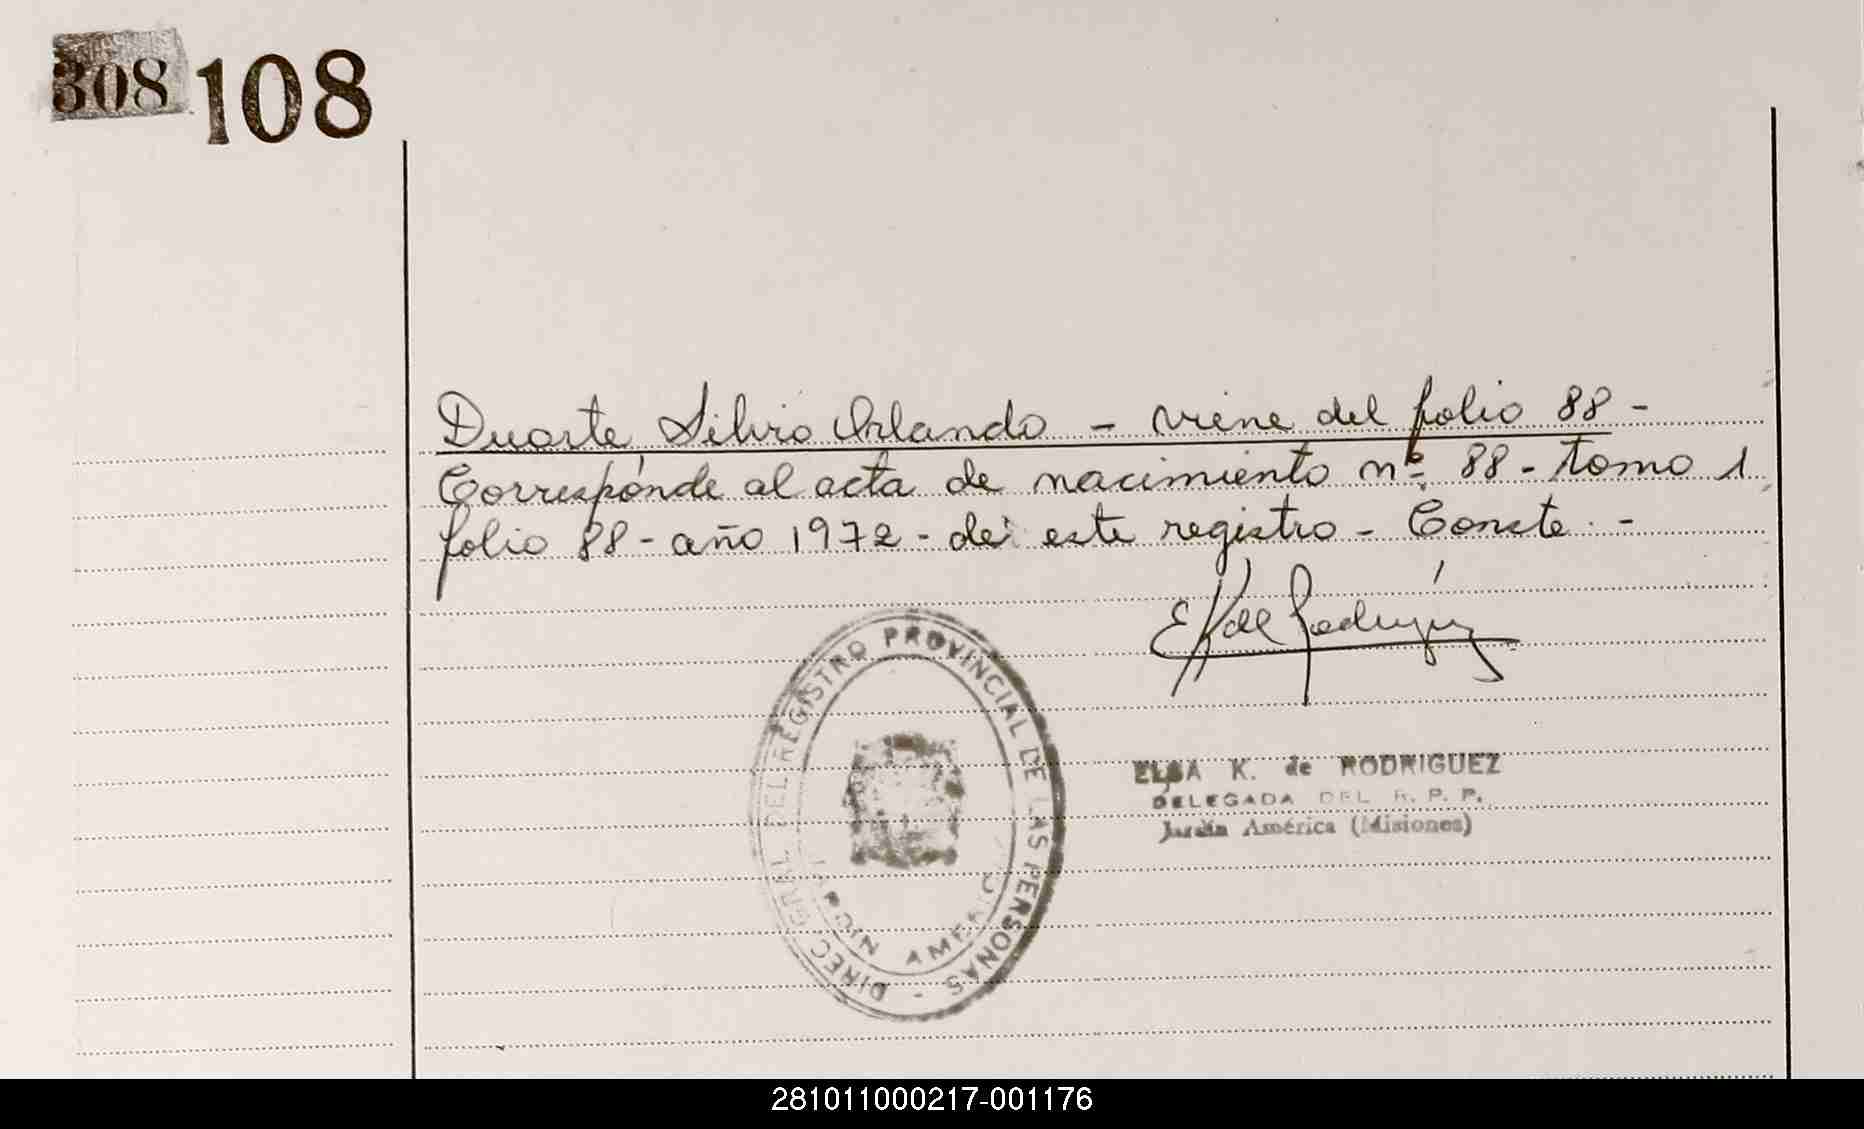 308 108
Duarte Silvio Orlando - viene del folio 88 -
Correspónde al acta de nacimiento nº 88 - tomo 1
folio 88 - año 1972 - de este registro - Conste. -
EK de Rodríguez
DIREC GRAL DEL REGISTRO PROVINCIAL DE LAS PERSONAS -
JARDIN AMERICA
ELSA K. de RODRIGUEZ
DELEGADA DEL R. P. P.
Jardín América (Misiones)
281011000217-001176